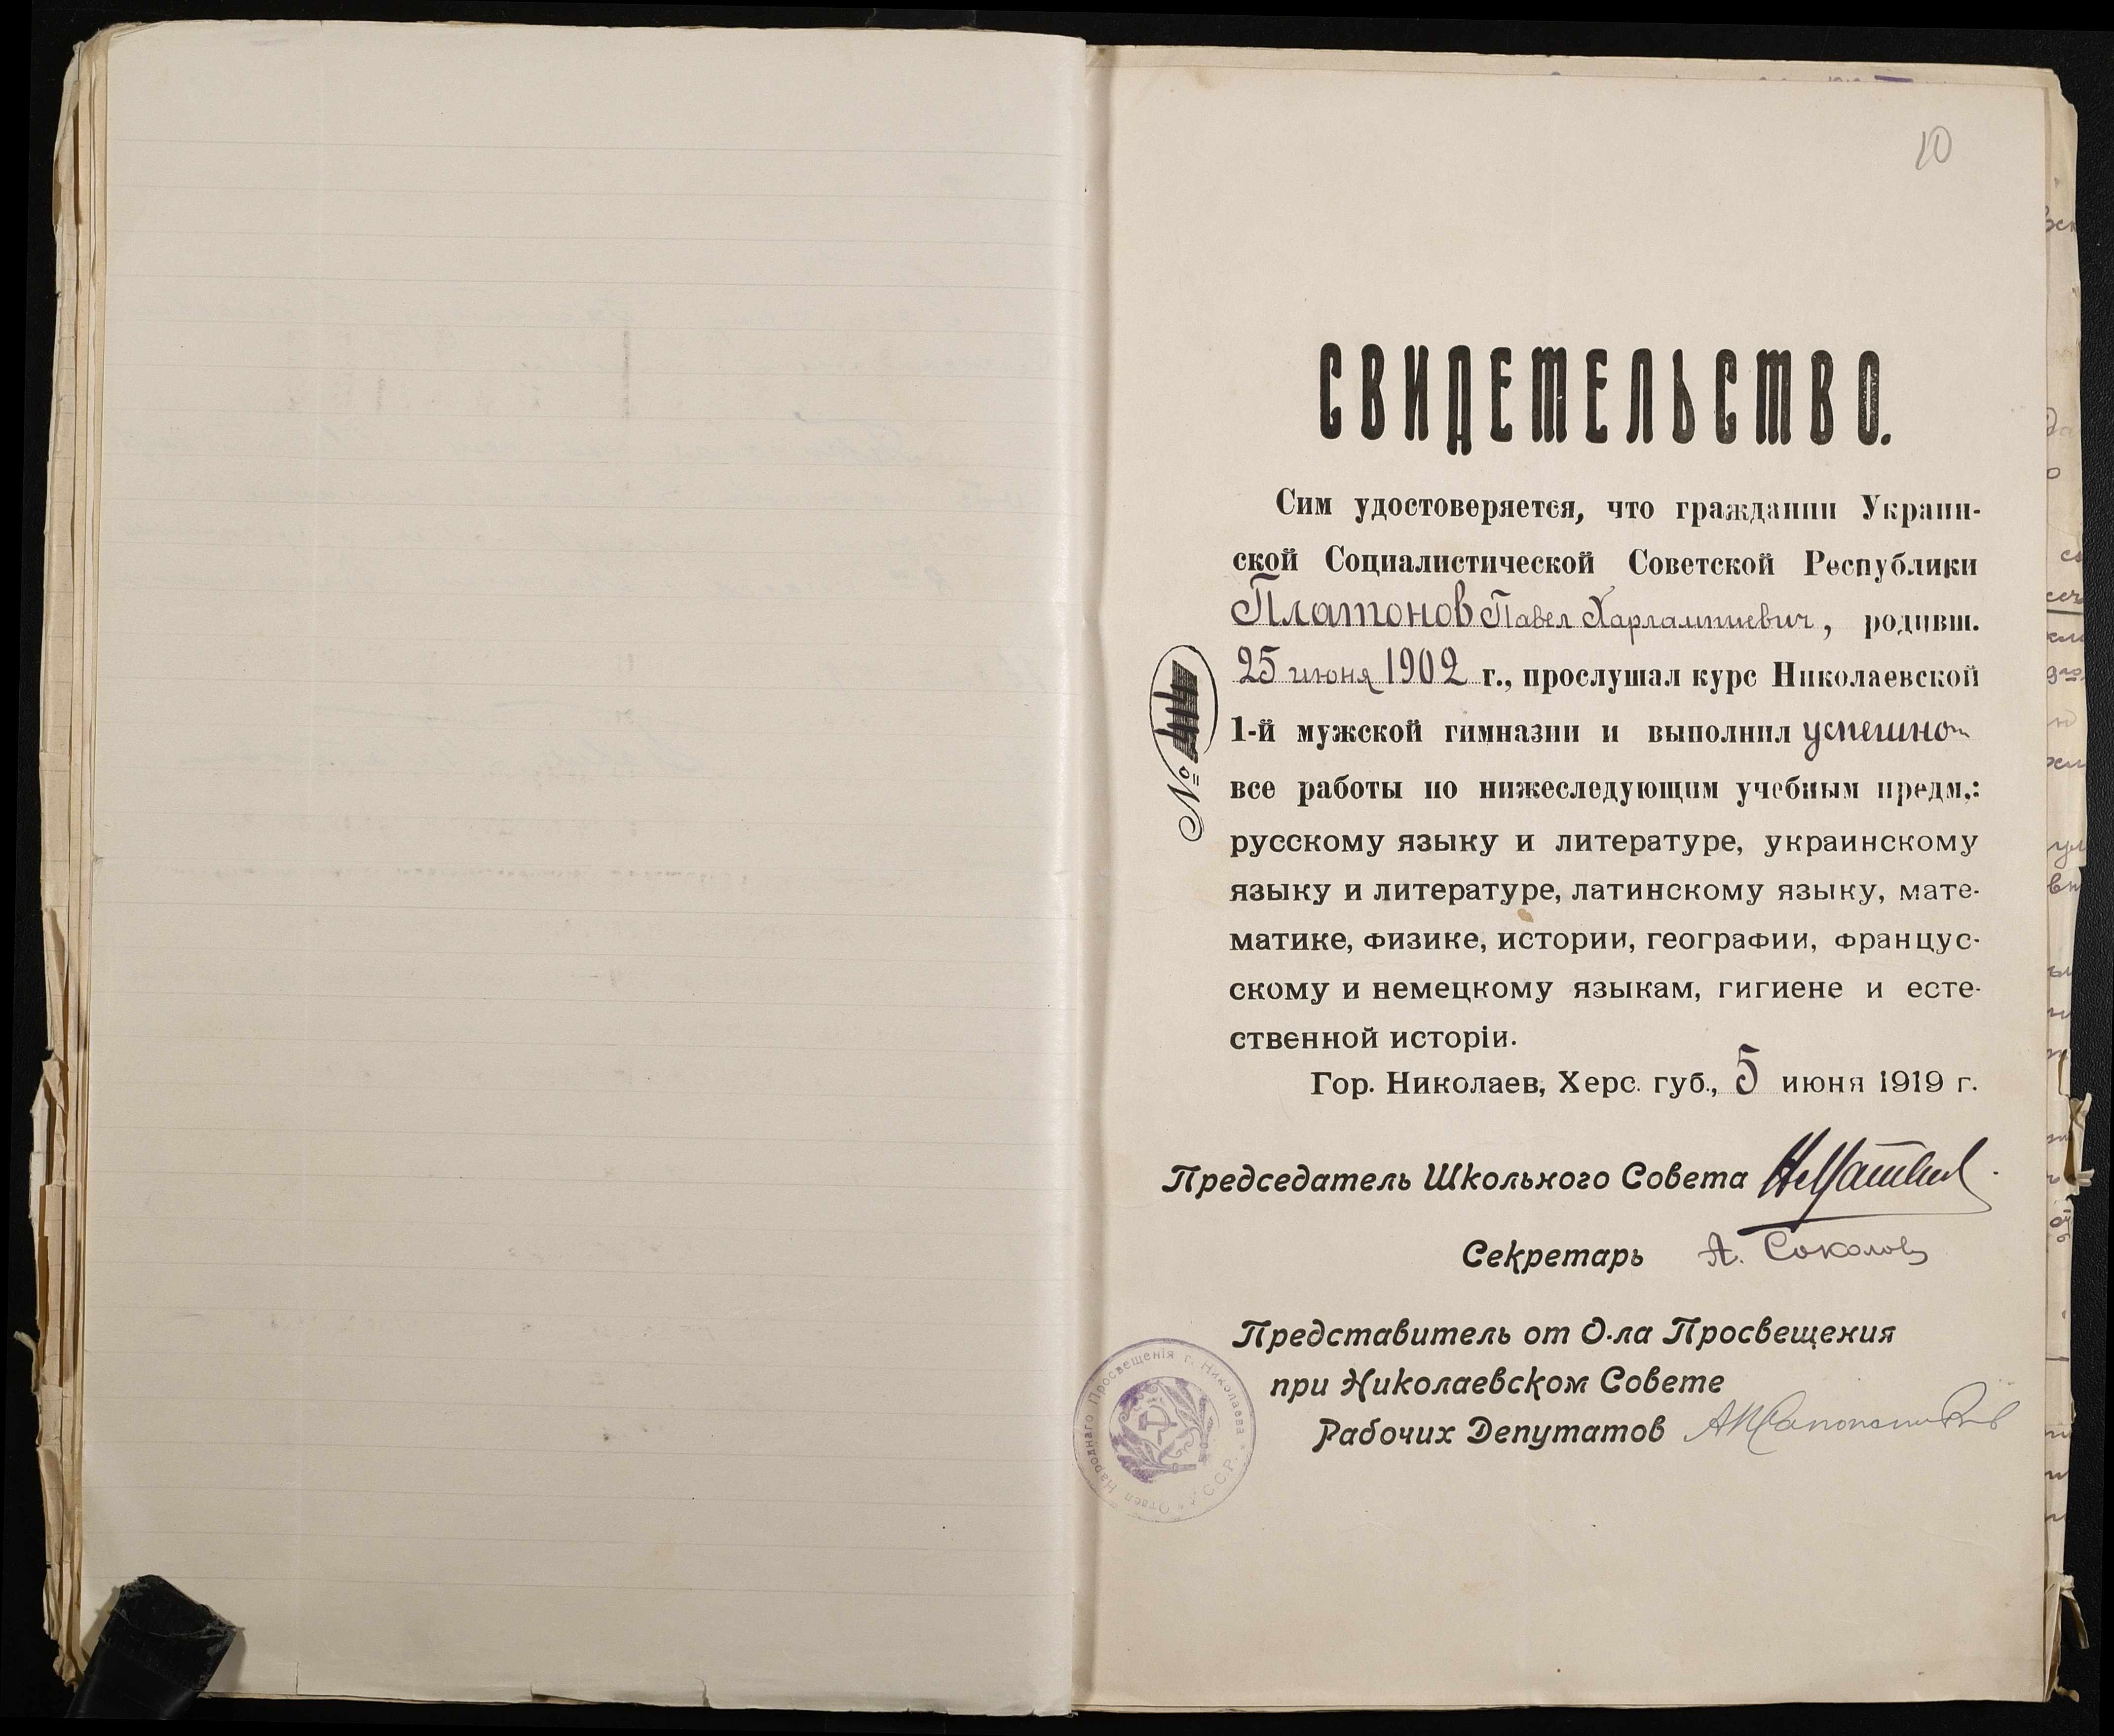 10
СВИДЕТЕЛЬСТВО.
Сим удостоверяется, что гражданин Украин-
ской Социалистической Советской Республики
Платонов Павел Харлампиевич, родивш.
25 июня 1902 г., прослушал курс Николаевской
1-й мужской гимназии и выполнил успешно
все работы по нижеследующим учебным предм.:
русскому языку и литературе, украинскому
языку и литературе, латинскому языку, мате-
матике, физике, истории, географии, француз-
скому и немецкому языкам, гигиене и есте-
ственной исторіи.
Гор. Николаев, Херс. губ., 5 июня 1919 г.
№
Председатель Школьного Совета
Секретарь А. Соколов
Представитель от О-ла Просвещения
при Николаевском Совете
Рабочих Депутатов
Отдел Народнаго Просвещенія г. Николаева * У.С.С.Р. *